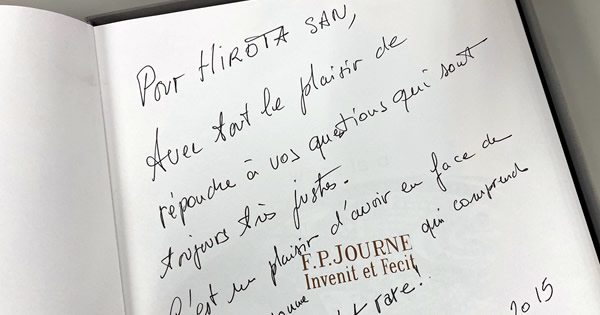 Pour HIROTA SAN,
Avec tout le plaisir de
répondre à vos questions qui sont
toujours très justes.
C'est un plaisir d'avoir en face de
qui comprends
F.P.JOURNE
Invenit et Fecit
rare!
2015